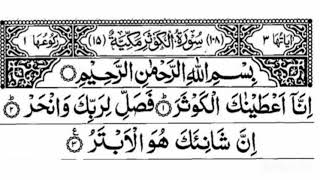 اٰیاتها ٣ (١٠٨) سُوْرَةُ الْكَوْثَرِ مَكِّيَّةٌ (١٥) رُكُوْعُهَا ١
بِسْمِ اللّٰهِ الرَّحْمٰنِ الرَّحِيْمِ
اِنَّاۤ اَعْطَيْنٰكَ الْكَوْثَرَ ١ فَصَلِّ لِرَبِّكَ وَانْحَرْ ٢
اِنَّ شَانِئَكَ هُوَ الْاَبْتَرُ ٣